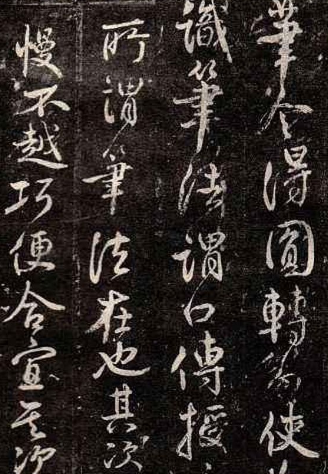 筆令得圓轉勿使
識筆法謂口傳授
所謂筆法在也其次
慢不越巧便合宜其次